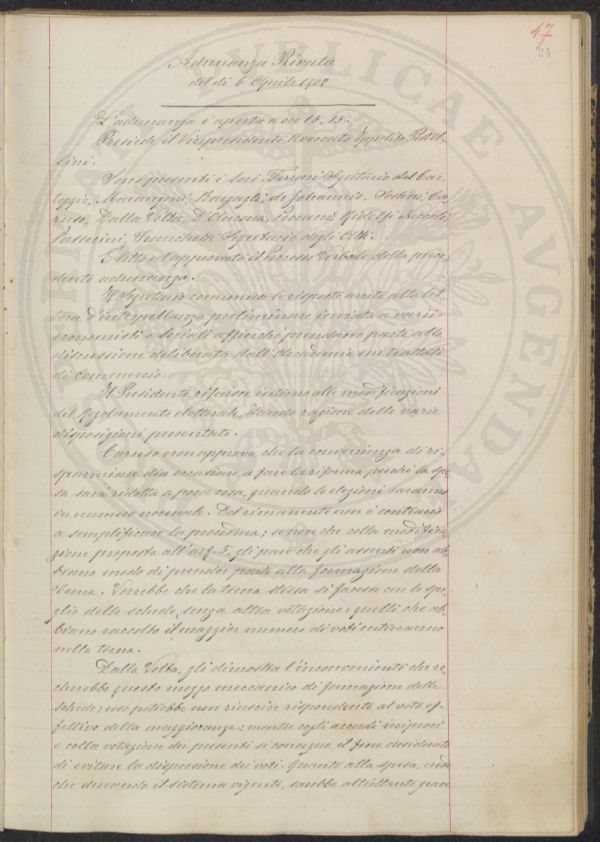 47
24
Adunanza Privata
del dì 6 Aprile 1902
L'adunanza è aperta a ore 15,15.
Presiede il Vicepresidente Avvocato Ippolito Pestel-
lini.
Sono presenti i soci Ferrari Segretario del Car-
teggio, Marangoni, Bargagli, de Johannis, Ca-
ruso, Dalla Volta, D'Ancona, Ridolfi Niccolò
Passerini, Franchetti Segretario degli Atti.
È letto ed approvato il Processo Verbale della prece-
dente adunanza.
Il Segretario comunica le risposte avute alla let-
tera d'interpellanza preliminare inviata a varii
economisti e sociali affinchè prendano parte alla
discussione deliberata dall'Accademia sui trattati
di Commercio.
Il Presidente riferisce intorno alle modificazioni
del Regolamento elettorale, dando ragione delle varie
disposizioni presentate.
Caruso non approva che la convenienza di ri-
sparmiare dia occasione a fare la riforma perchè la spe-
sa sarà ridotta a poca cosa, quando le elezioni saranno
in numero normale. Del rimanente non è contrario
a semplificare la procedura; se non che colla modifica-
zione proposta all'art. 5, gli pare che gli assenti non ab-
biano modo di prender parte alla formazione della
terna. Vorrebbe che la terna stessa si facesse con lo spo-
glio delle schede, senza altra votazione: quelli che ab-
biano raccolto il maggior numero di voti entreranno
nella terna.
Dalla Volta, gli dimostra l'inconveniente che re-
cherebbe questo mezzo meccanico di formazione delle
schede; esso potrebbe non riuscire rispondente al voto ef-
fettivo della maggioranza: mentre cogli accordi reciproci
e colla votazione dei presenti si consegue il fine desiderato
di evitare la dispersione dei voti. Quanto alla spesa, crede
che durando il sistema vigente, sarebbe altrettanto grave
PUBLICAE
AUGENDAE